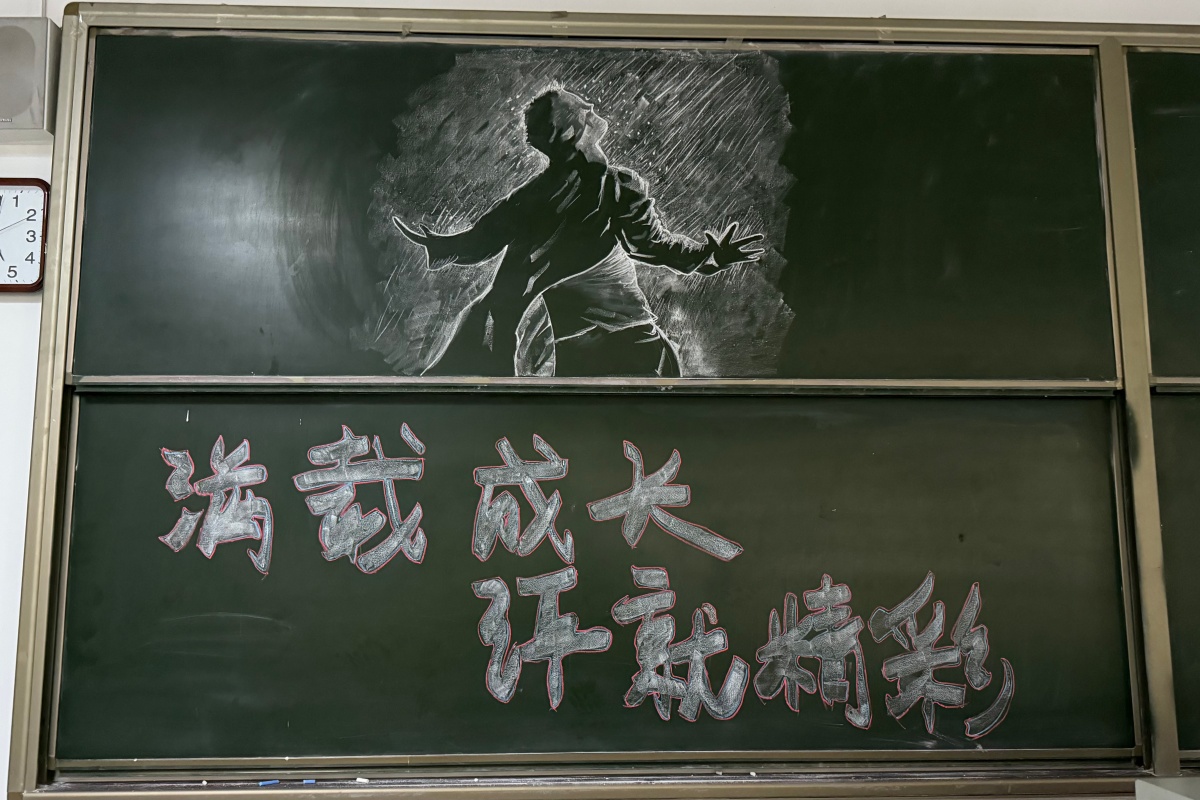 1
2
3
4
5
满载成长
讦就精彩